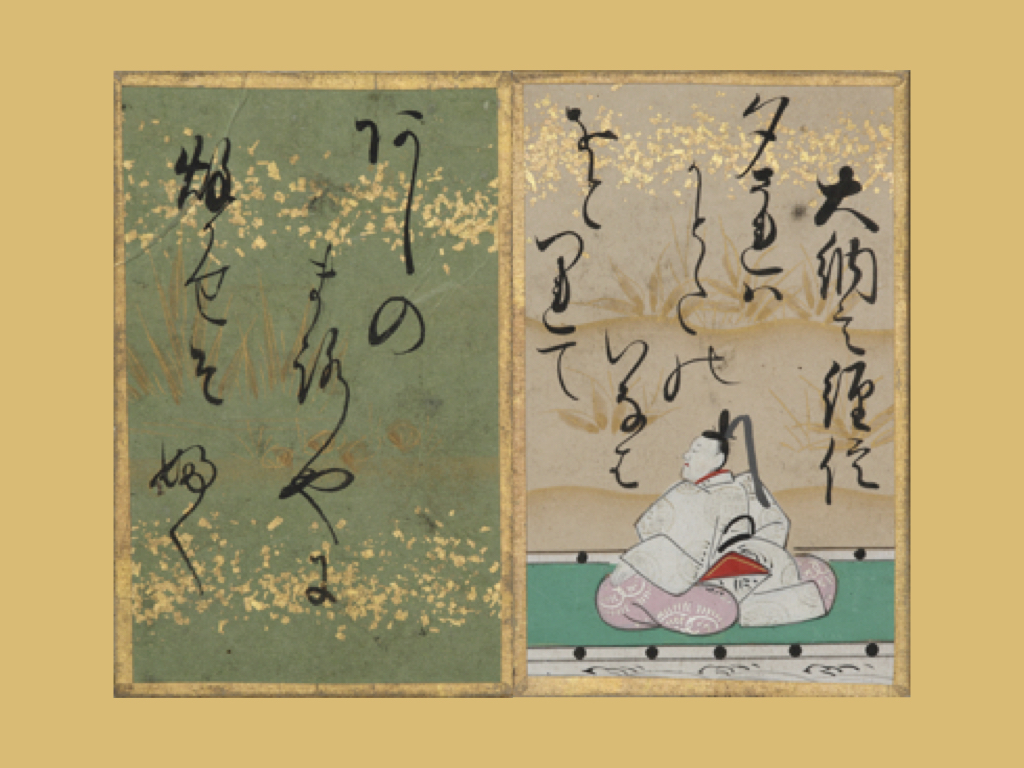 大納言經信
夕されは
かとたの
いなは
をと
つれて
あしの
まろやに
秋かせそ
ふく